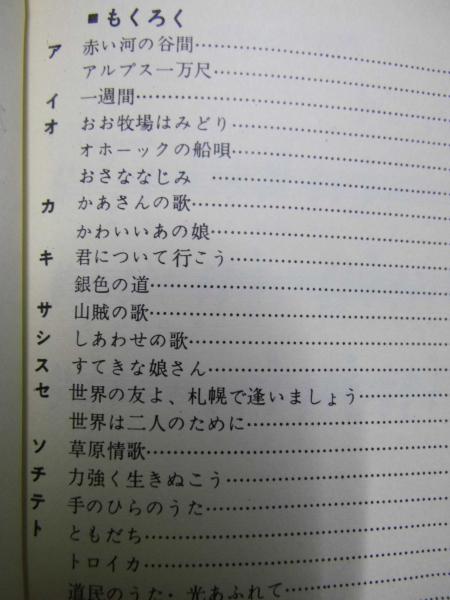 ■もくろく
ア 赤い河の谷間……………
アルプス一万尺……………
イ 一週間……………
オ おお牧場はみどり……………
オホーックの船唄……………
おさななじみ ……………
カ かあさんの歌……………
かわいいあの娘……………
キ 君について行こう……………
銀色の道……………
サ 山賊の歌……………
シ しあわせの歌……………
ス すてきな娘さん……………
セ 世界の友よ、札幌で逢いましょう……………
世界は二人のために……………
ソ 草原情歌……………
チ 力強く生きぬこう……………
テ 手のひらのうた……………
ト ともだち……………
トロイカ……………
道民のうた・光あふれて……………